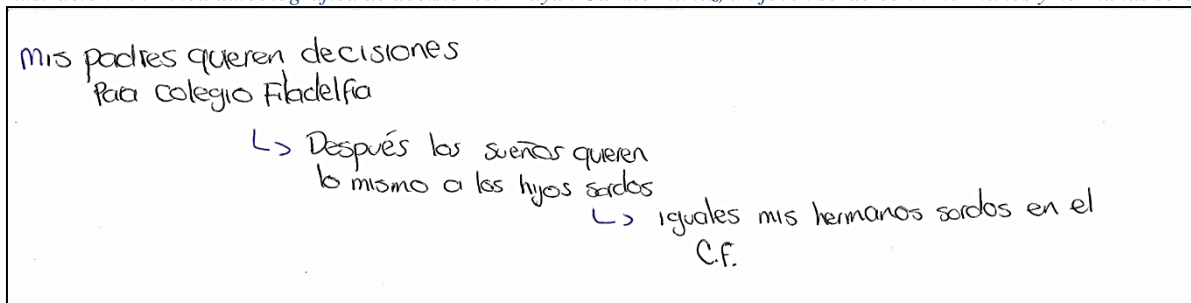 Mis padres quieren decisiones
Para colegio Filadelfia
↳ Después los sueños quieren
lo mismo a los hijos sordos
↳ iguales mis hermanos sordos en el
C.F.